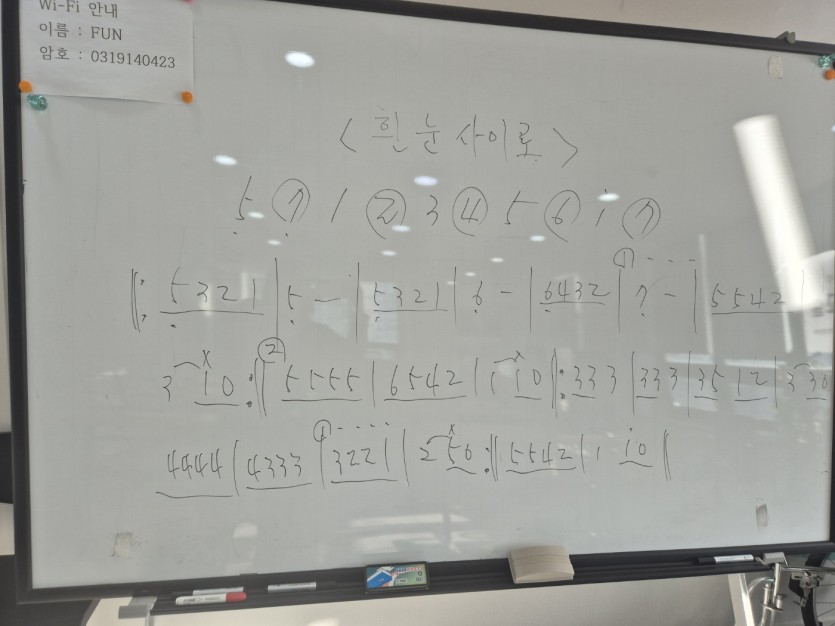 Wi-Fi 안내
이름 : FUN
암호 : 0319140423
< 흰눈 사이로 >
5 7 1 2 3 4 5 6 i 7
||: 5321 | 5 - | 5321 | 6 - | 6432 | 7 - | 5542 |
3 10 :|| ② 5555 | 6542 | 1 10 ||: 333 | 333 | 3512 | 3 30
4444 | 4333 | ① 3221 | 2 50 :|| 5542 | 1 10 ||